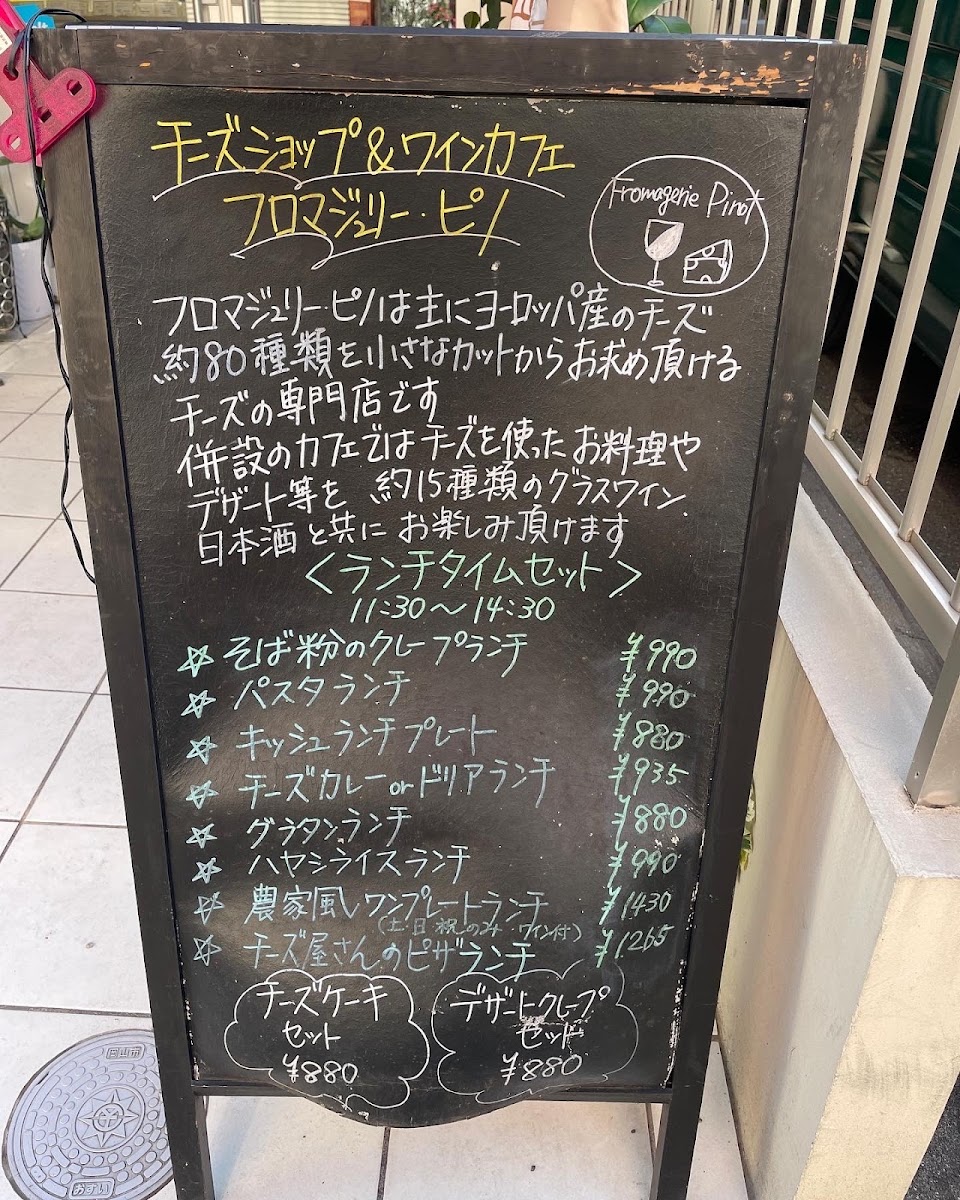 チーズショップ&ワインカフェ
フロマジュリー・ピノ
Fromagerie Pinot
フロマジュリー・ピノは主にヨーロッパ産のチーズ
約80種類を小さなカットからお求め頂ける
チーズの専門店です
併設のカフェではチーズを使ったお料理や
デザート等を 約15種類のグラスワイン、
日本酒と共に お楽しみ頂けます
<ランチタイムセット>
11:30〜14:30
☆ そば粉のクレープランチ ¥990
☆ パスタランチ ¥990
☆ キッシュランチプレート ¥880
☆ チーズカレーorドリアランチ ¥935
☆ グラタンランチ ¥880
☆ ハヤシライスランチ ¥990
☆ 農家風ワンプレートランチ ¥1430
(土・日・祝のみ・ワイン付)
☆ チーズ屋さんのピザランチ ¥1265
チーズケーキ
セット
¥880
デザートクレープ
セット
¥880
岡山市
おすい